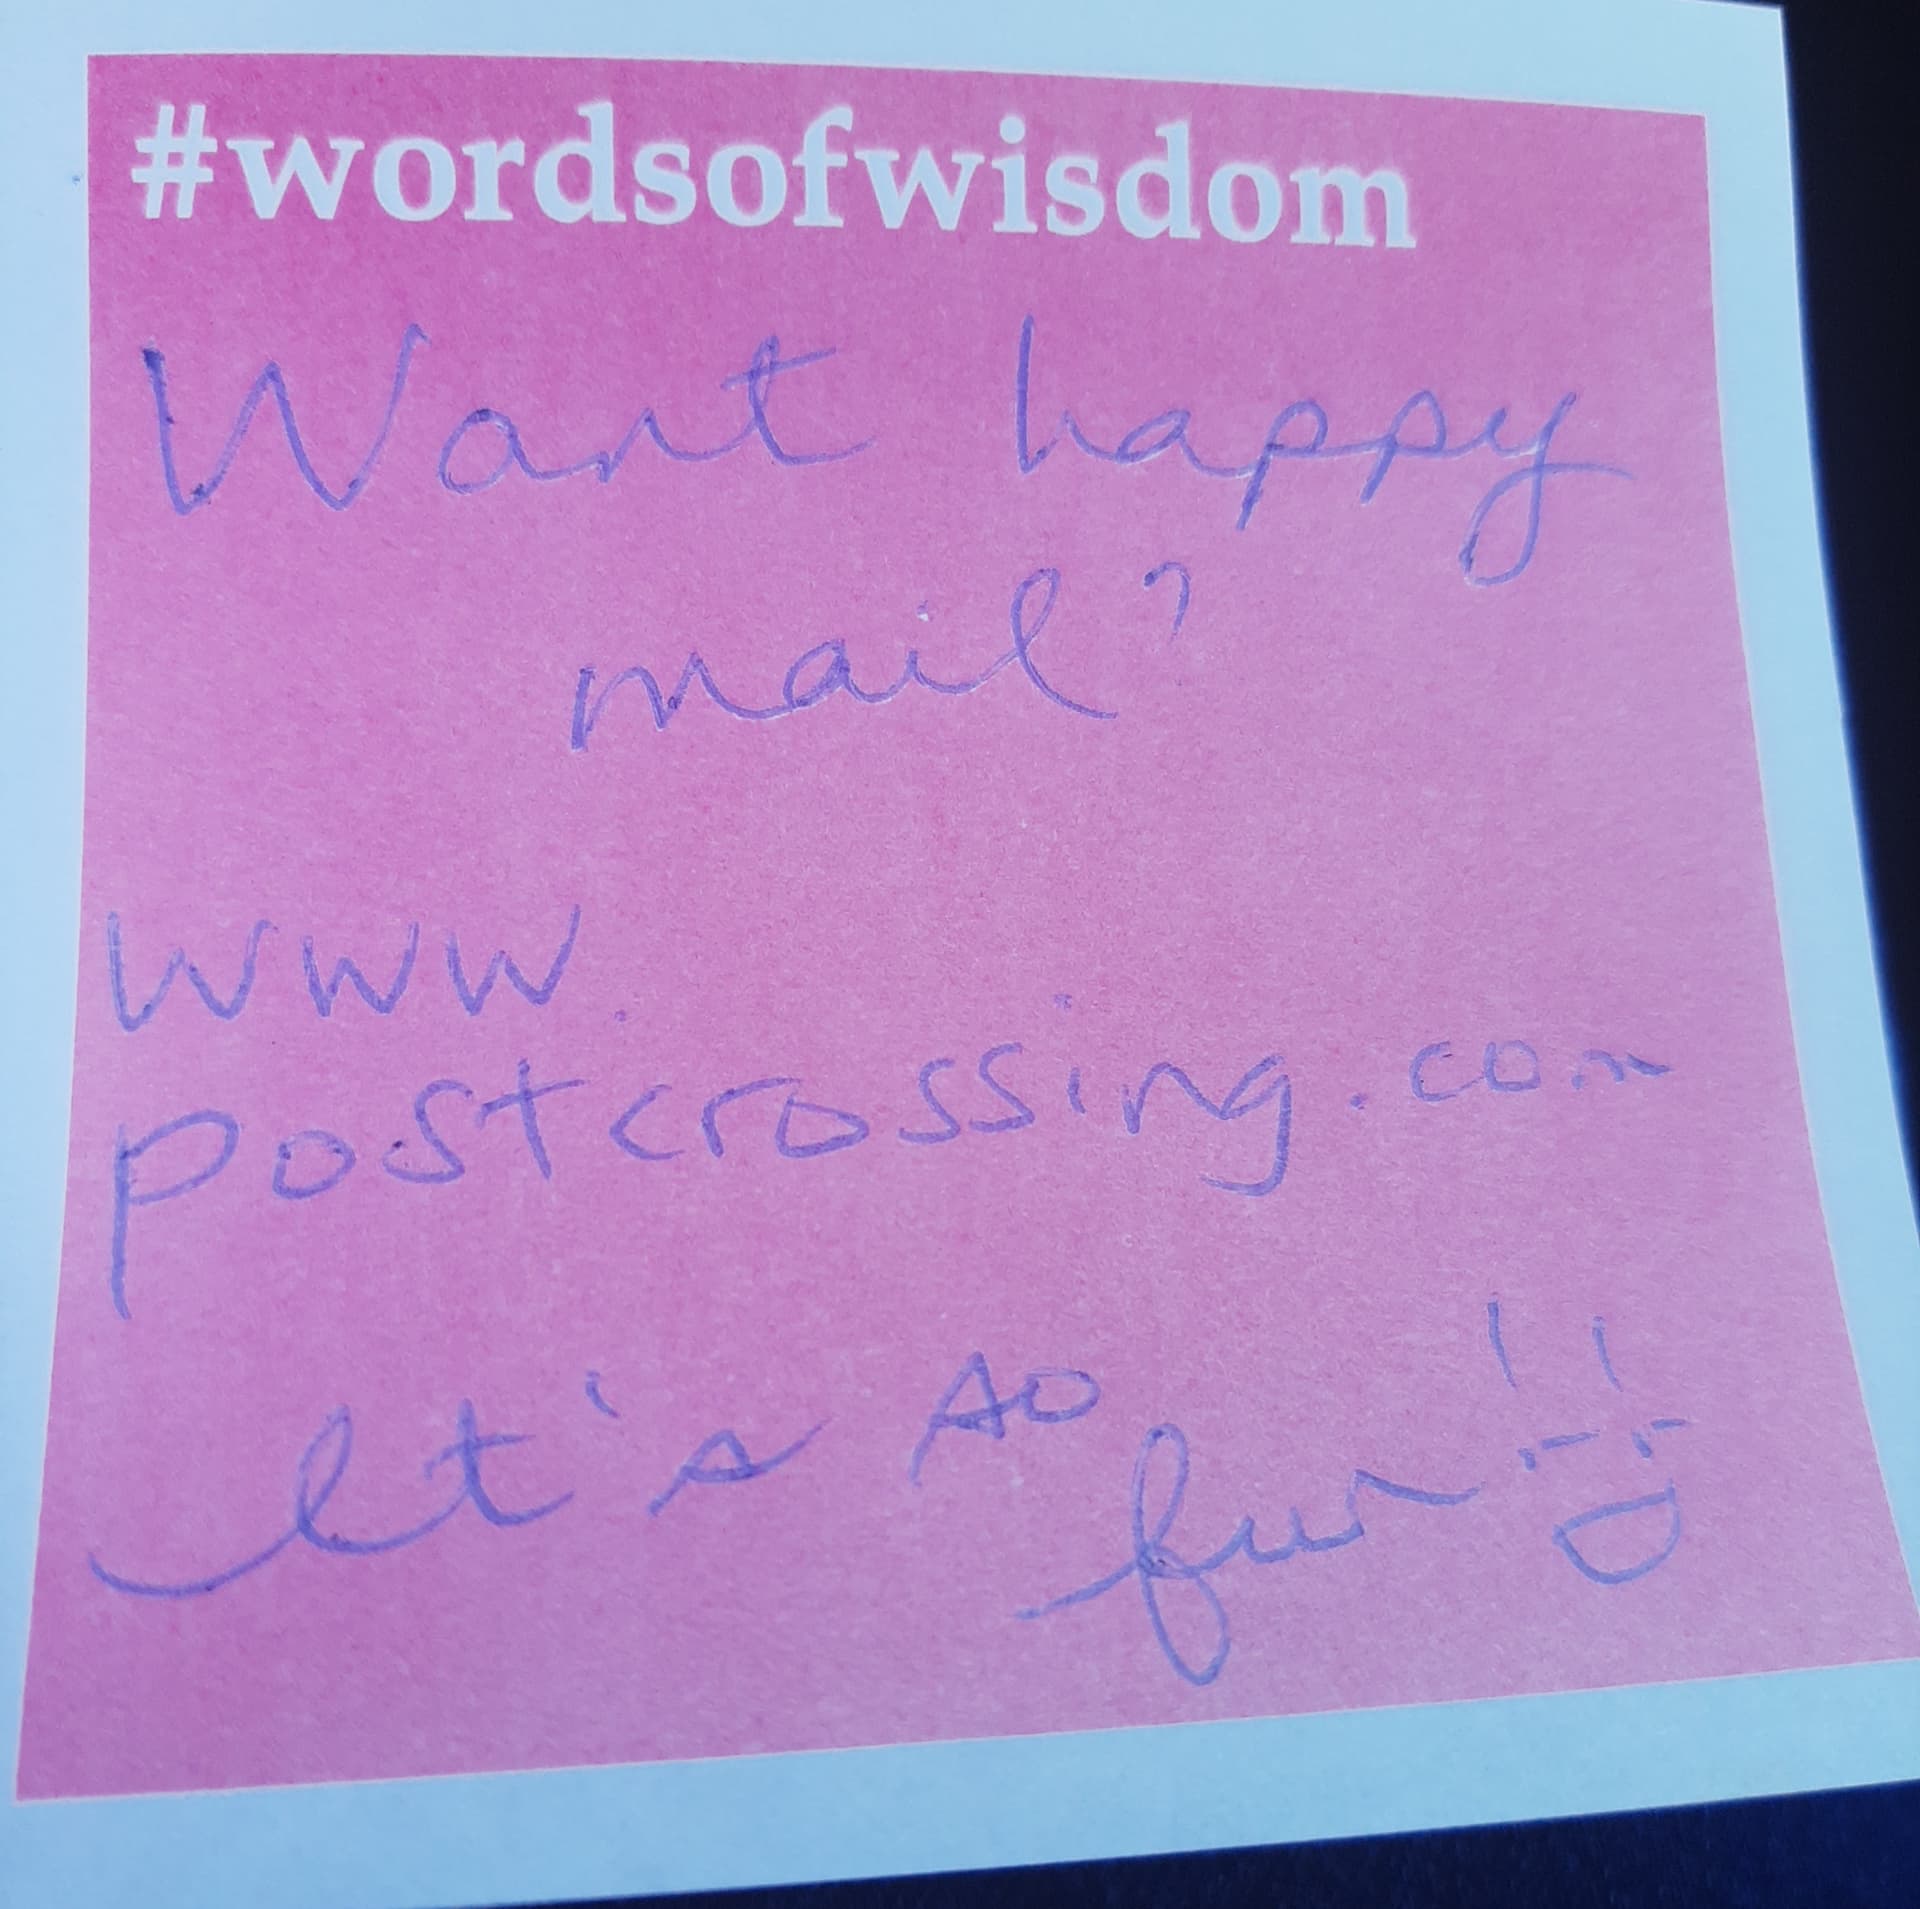 #wordsofwisdom
Want happy
mail?
www.
postcrossing.com
It's so
fun!!